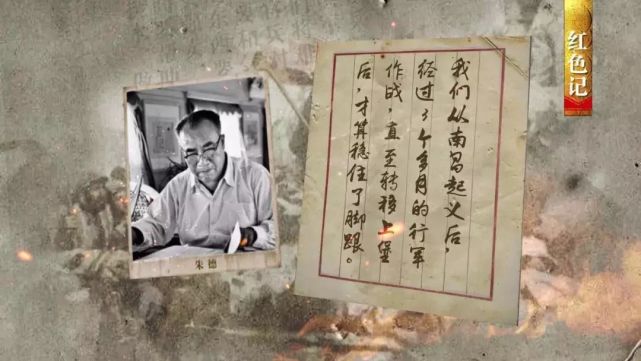 红色记
我们从南昌起义后，
经过3个多月的行军
作战，直至转移上堡
后，才算稳住了脚跟。
朱德